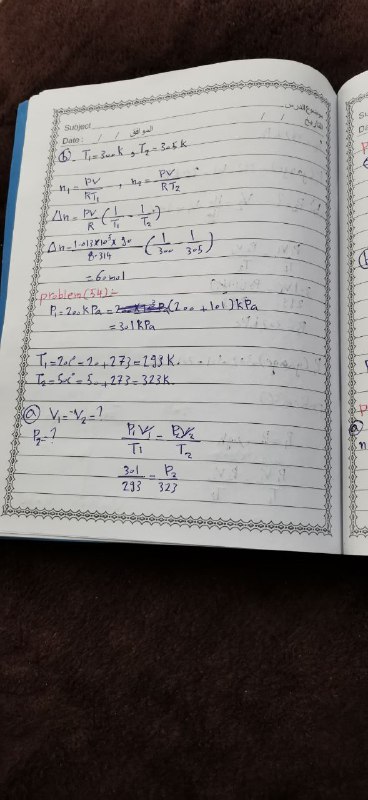 موضوع الدرس
Subject
التاريخ / / الموافق / /
Date:
(b) - T₁ = 300 K , T₂ = 305 K
n₁ = PV/RT₁ , n₂ = PV/RT₂
Δn = PV/R (1/T₁ - 1/T₂)
Δn = 1.013×10⁵ × 90/8.314 (1/300 - 1/305)
= 60 mol
problem (54):-
P₁ = 200 kPa = (200 + 101) kPa
= 301 kPa
T₁ = 20c° = 20 + 273 = 293 K.
T₂ = 50c° = 50 + 273 = 323 K.
(a) V₁ = V₂ = ?
P₂ = ? P₁V₁/T₁ = P₂V₂/T₂
301/293 = P₂/323